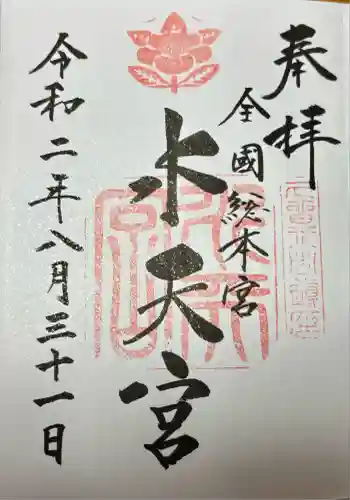 奉拝
全國総本宮
水天宮
令和二年八月三十一日